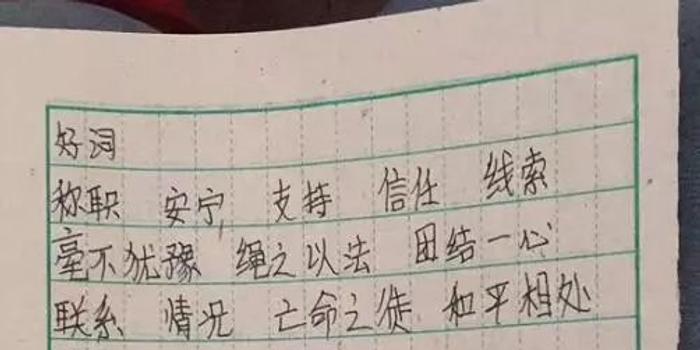 好词
称职 安宁 支持 信任 线索
毫不犹豫 绳之以法 团结一心
联系 情况 亡命之徒 和平相处